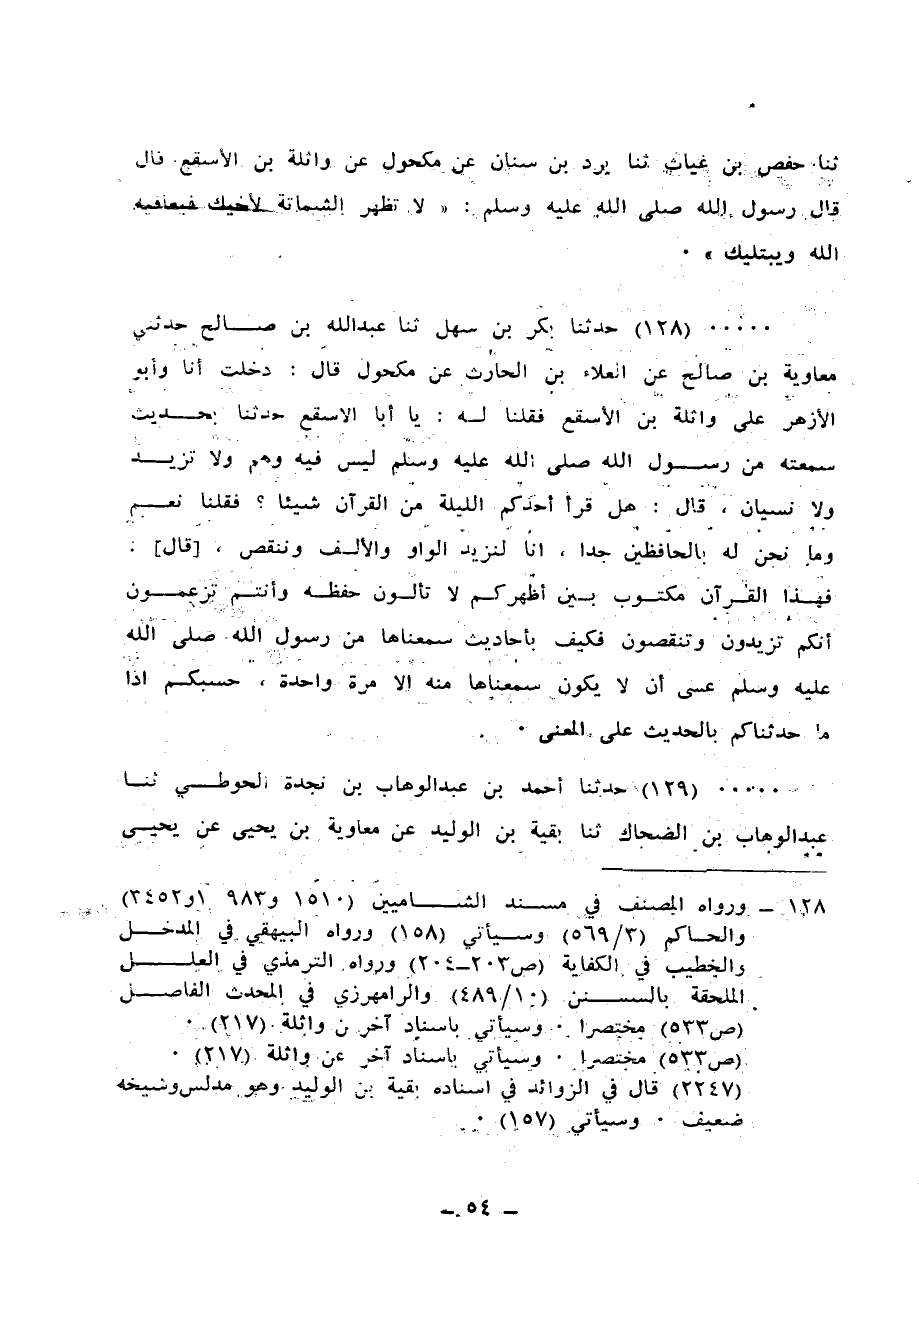 ثنا حفص بن غياث ثنا يرد بن سنان عن مكحول عن واثلة بن الأسقع قال
قال رسول الله صلى الله عليه وسلم : « لا تظهر الشماتة لأخيك فيعافيه
الله ويبتليك » ٠
٠٠٠٠٠ (١٢٨) حدثنا بكر بن سهل ثنا عبدالله بن صالح حدثني
معاوية بن صالح عن العلاء بن الحارث عن مكحول قال : دخلت أنا وأبو
الأزهر على واثلة بن الأسقع فقلنا له : يا أبا الاسقع حدثنا بحديث
سمعته من رسول الله صلى الله عليه وسلم ليس فيه وهم ولا تزيد
ولا نسيان ، قال : هل قرأ أحدكم الليلة من القرآن شيئا ؟ فقلنا نعم
وما نحن له بالحافظين جدا ، انا لنزيد الواو والألف وننقص ، [قال] :
فهذا القرآن مكتوب بين أظهركم لا تألون حفظه وأنتم تزعمون
أنكم تزيدون وتنقصون فكيف بأحاديث سمعناها من رسول الله صلى الله
عليه وسلم عسى أن لا يكون سمعناها منه الا مرة واحدة ، حسبكم اذا
ما حدثناكم بالحديث على المعنى ٠
٠٠٠٠٠ (١٢٩) حدثنا أحمد بن عبدالوهاب بن نجدة الحوطي ثنا
عبدالوهاب بن الضحاك ثنا بقية بن الوليد عن معاوية بن يحيى عن يحيى
١٢٨ ــ ورواه المصنف في مسند الشاميين (١٥١٠ و٩٨٣ ١و٣٤٥٢)
والحاكم (٥٦٩/٣) وسيأتي (١٥٨) ورواه البيهقي في المدخل
والخطيب في الكفاية (ص٢٠٣ــ٢٠٤) ورواه الترمذي في العلل
الملحقة بالسنن (٤٨٩/١٠) والرامهرزي في المحدث الفاصل
(ص٥٣٣) مختصرا ٠ وسيأتي باسناد آخر ن واثلة (٢١٧) ٠
(ص٥٣٣) مختصرا ٠ وسيأتي باسناد آخر عن واثلة (٢١٧) ٠
(٢٢٤٧) قال في الزوائد في اسناده بقية بن الوليد وهو مدلس وشيخه
ضعيف ٠ وسيأتي (١٥٧) ٠
ــ ٥٤ ــ